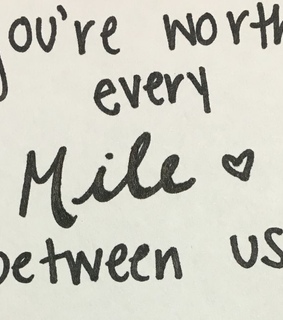 you're worth
every
Mile ♡
between us